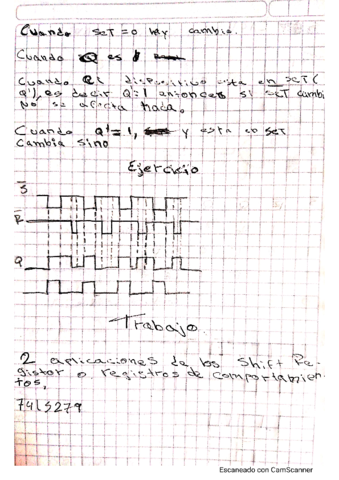 Cuando set = 0 hay cambio.
Cuando Q es
Cuando el dispositivo esta en set (
Q'), es decir Q=1 entonces si set cambi
No se afecta nada.
Cuando Q'=1, y esta en set
cambia sino
Ejercicio
S
R
Q
Trabajo
2 aplicaciones de los Shift Re-
gistor o registros de comportamien-
tos,
74LS279
Escaneado con CamScanner